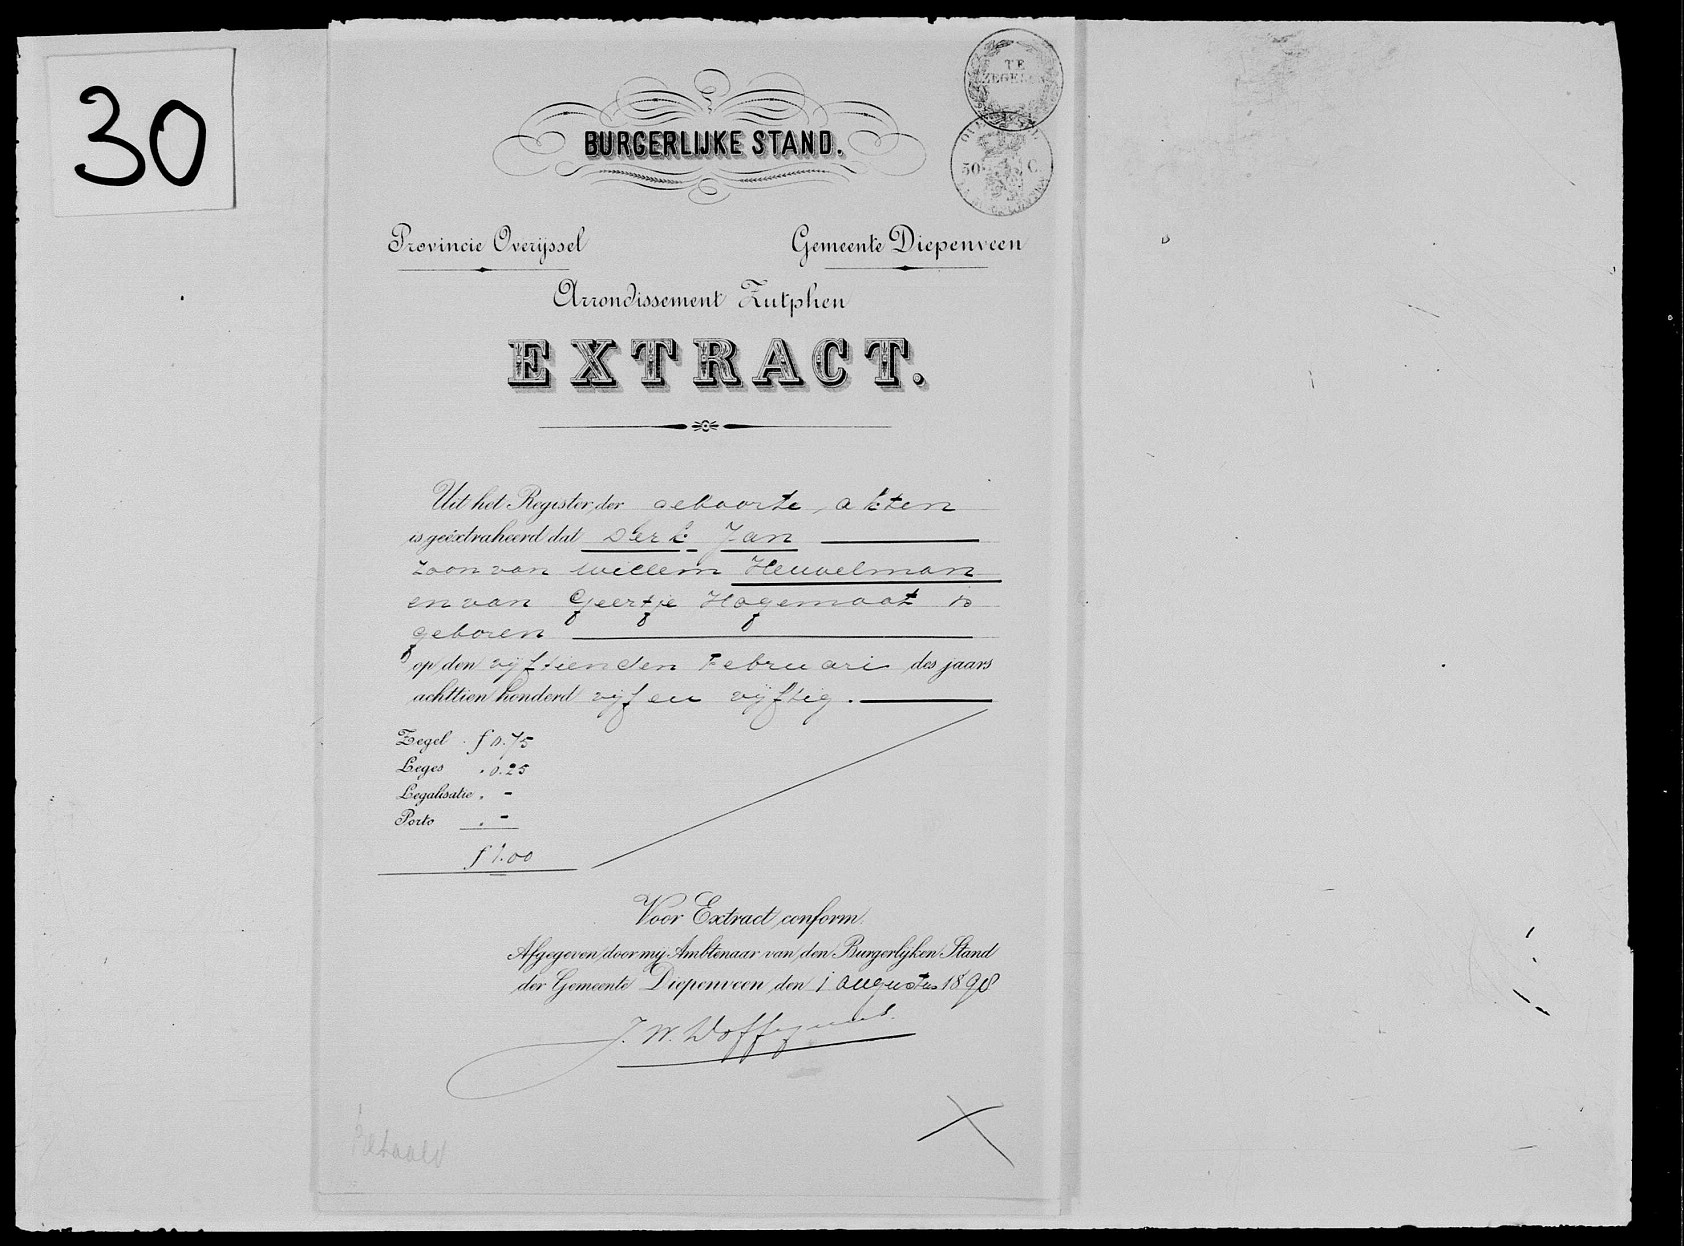 30
TE
ZEGELEN
50 C
BURGERLIJKE STAND.
Provincie Overijssel
Gemeente Diepenveen
Arrondissement Zutphen
EXTRACT.
Uit het Register der geboorte akten
is geëxtraheerd dat Derk Jan
zoon van Willem Heuvelman
en van Geertje Hagemaat is
geboren
op den vijftienden Februari des jaars
achttien honderd vijf en vijftig.
Zegel f 0.75
Leges " 0.25
Legalisatie " -
Porto " -
f 1.00
Voor Extract conform
Afgegeven door mij Ambtenaar van den Burgerlijken Stand
der Gemeente Diepenveen den 1 augustus 1898
J. W.
Betaald